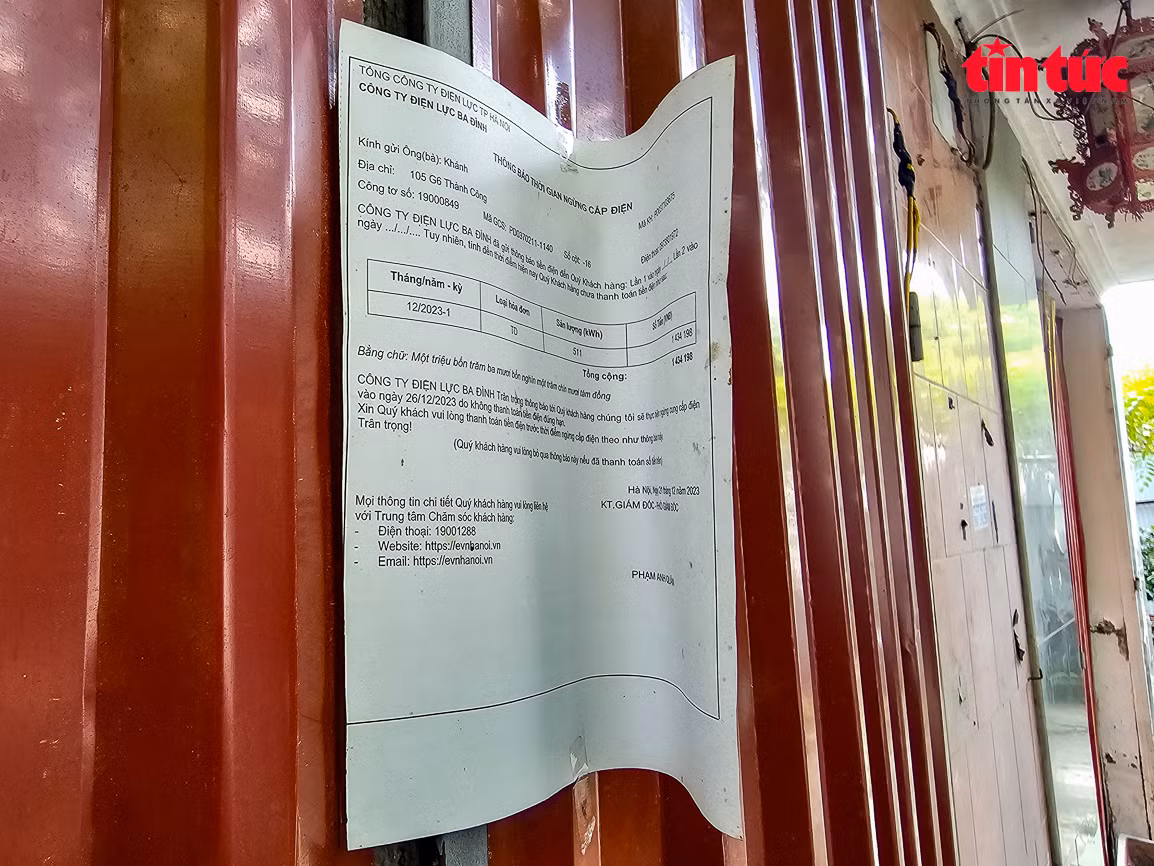 tin tức
TỔNG CÔNG TY ĐIỆN LỰC TP HÀ NỘI
CÔNG TY ĐIỆN LỰC BA ĐÌNH
THÔNG BÁO THỜI GIAN NGỪNG CẤP ĐIỆN
Kính gửi Ông(bà): Khánh
Địa chỉ: 105 G6 Thành Công
Công tơ số: 19000849 Mã GCS: PD0370211-1140 Số cột: -16 Điện thoại:
CÔNG TY ĐIỆN LỰC BA ĐÌNH đã gửi thông báo tiền điện đến Quý Khách hàng: Lần 1 vào ngày .../.../... Lần 2 vào
ngày .../.../.... Tuy nhiên, tính đến thời điểm hiện nay Quý Khách hàng chưa thanh toán tiền điện như sau:
Tháng/năm - kỳ Loại hóa đơn Sản lượng (kWh) Số Tiền (VNĐ)
12/2023-1 TD 511 1 434 198
Tổng cộng: 1 434 198
Bằng chữ: Một triệu bốn trăm ba mươi bốn nghìn một trăm chín mươi tám đồng
CÔNG TY ĐIỆN LỰC BA ĐÌNH Trân trọng thông báo tới Quý khách hàng chúng tôi sẽ thực hiện ngừng cung cấp điện
vào ngày 26/12/2023 do không thanh toán tiền điện đúng hạn.
Xin Quý khách vui lòng thanh toán tiền điện trước thời điểm ngừng cấp điện theo như thông báo này
Trân trọng!
(Quý khách hàng vui lòng bỏ qua thông báo này nếu đã thanh toán số tiền trên)
Hà Nội, Ngày 21 tháng 12 năm 2023
KT.GIÁM ĐỐC-PHÓ GIÁM ĐỐC
Mọi thông tin chi tiết Quý khách hàng vui lòng liên hệ
với Trung tâm Chăm sóc khách hàng:
- Điện thoại: 19001288
- Website: https://evnhanoi.vn
- Email: https://evnhanoi.vn
PHẠM ANH